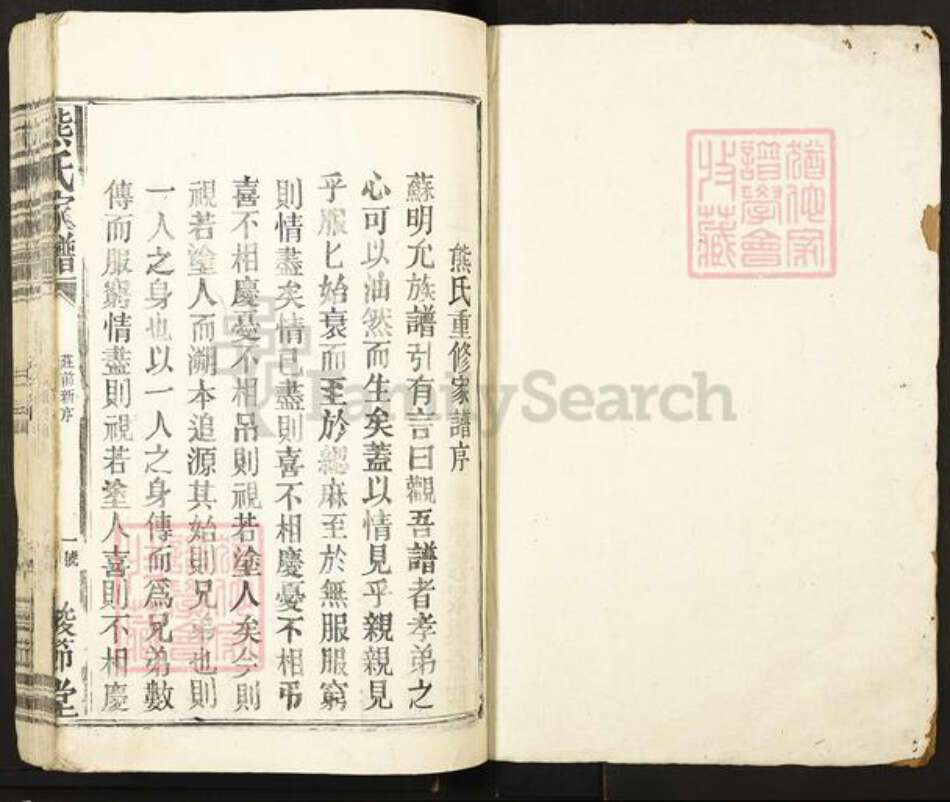 熊氏重修家譜序
蘇明允族譜引有言曰觀吾譜者孝弟之
心可以油然而生矣蓋以情見乎親親見
乎服匕始衰而至於緦麻至於無服服窮
則情盡矣情已盡則喜不相慶憂不相弔
喜不相慶憂不相吊則視若塗人矣今則
視若塗人而溯本追源其始則兄弟也則
一人之身也以一人之身傳而爲兄弟數
傳而服窮情盡則視若塗人喜則不相慶
熊氏家譜
莊前新序
一號
節堂
猶他家
譜學會
收藏
FamilySearch